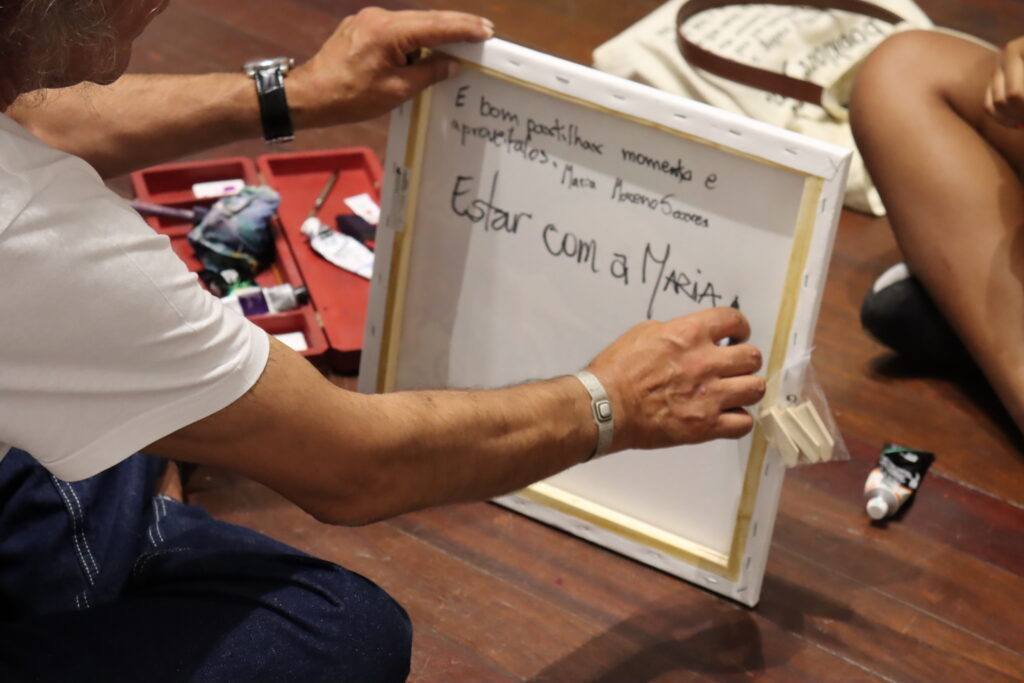 E bom partilhar momento e
aproveitalos. Maria Moreno Soares
Estar com a MARIA